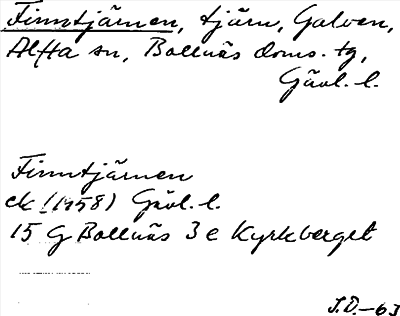 Finntjärnen, tjärn, Galven,
Alfta sn, Bollnäs doms. tg,
Gävl. l.
Finntjärnen
ek (1958) Gävl. l.
15 G Bollnäs 3 e Kyrkberget
S.D.-63